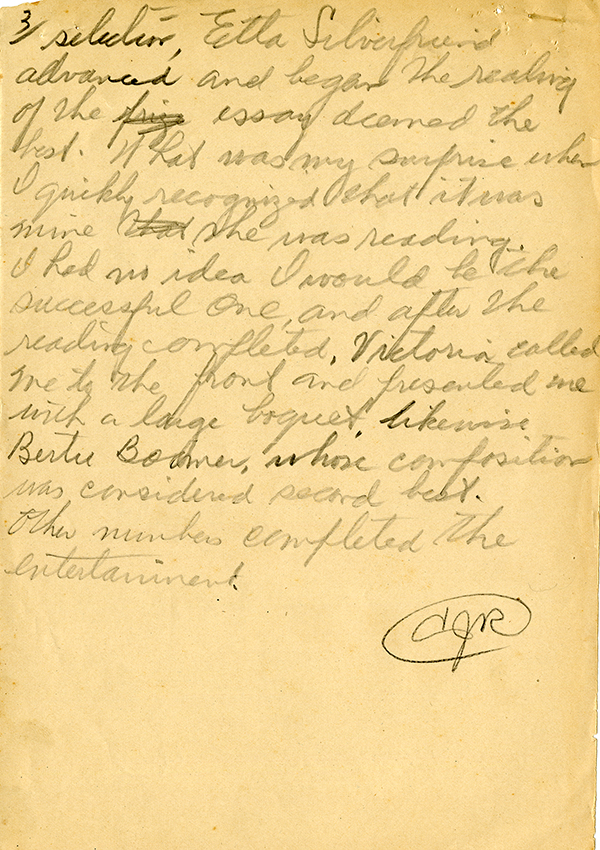 3/ selection, Etta Silverfriend
advanced and began the reading
of the friz essay deemed the
best. What was my surprise when
I quickly recognized that it was
mine that she was reading.
I had no idea I would be the
successful one, and after the
reading completed, Victoria called
me to the front and presented me
with a large boquet, likewise
Bertie Boomer, whose composition
was considered second best.
Other numbers completed the
entertainment.